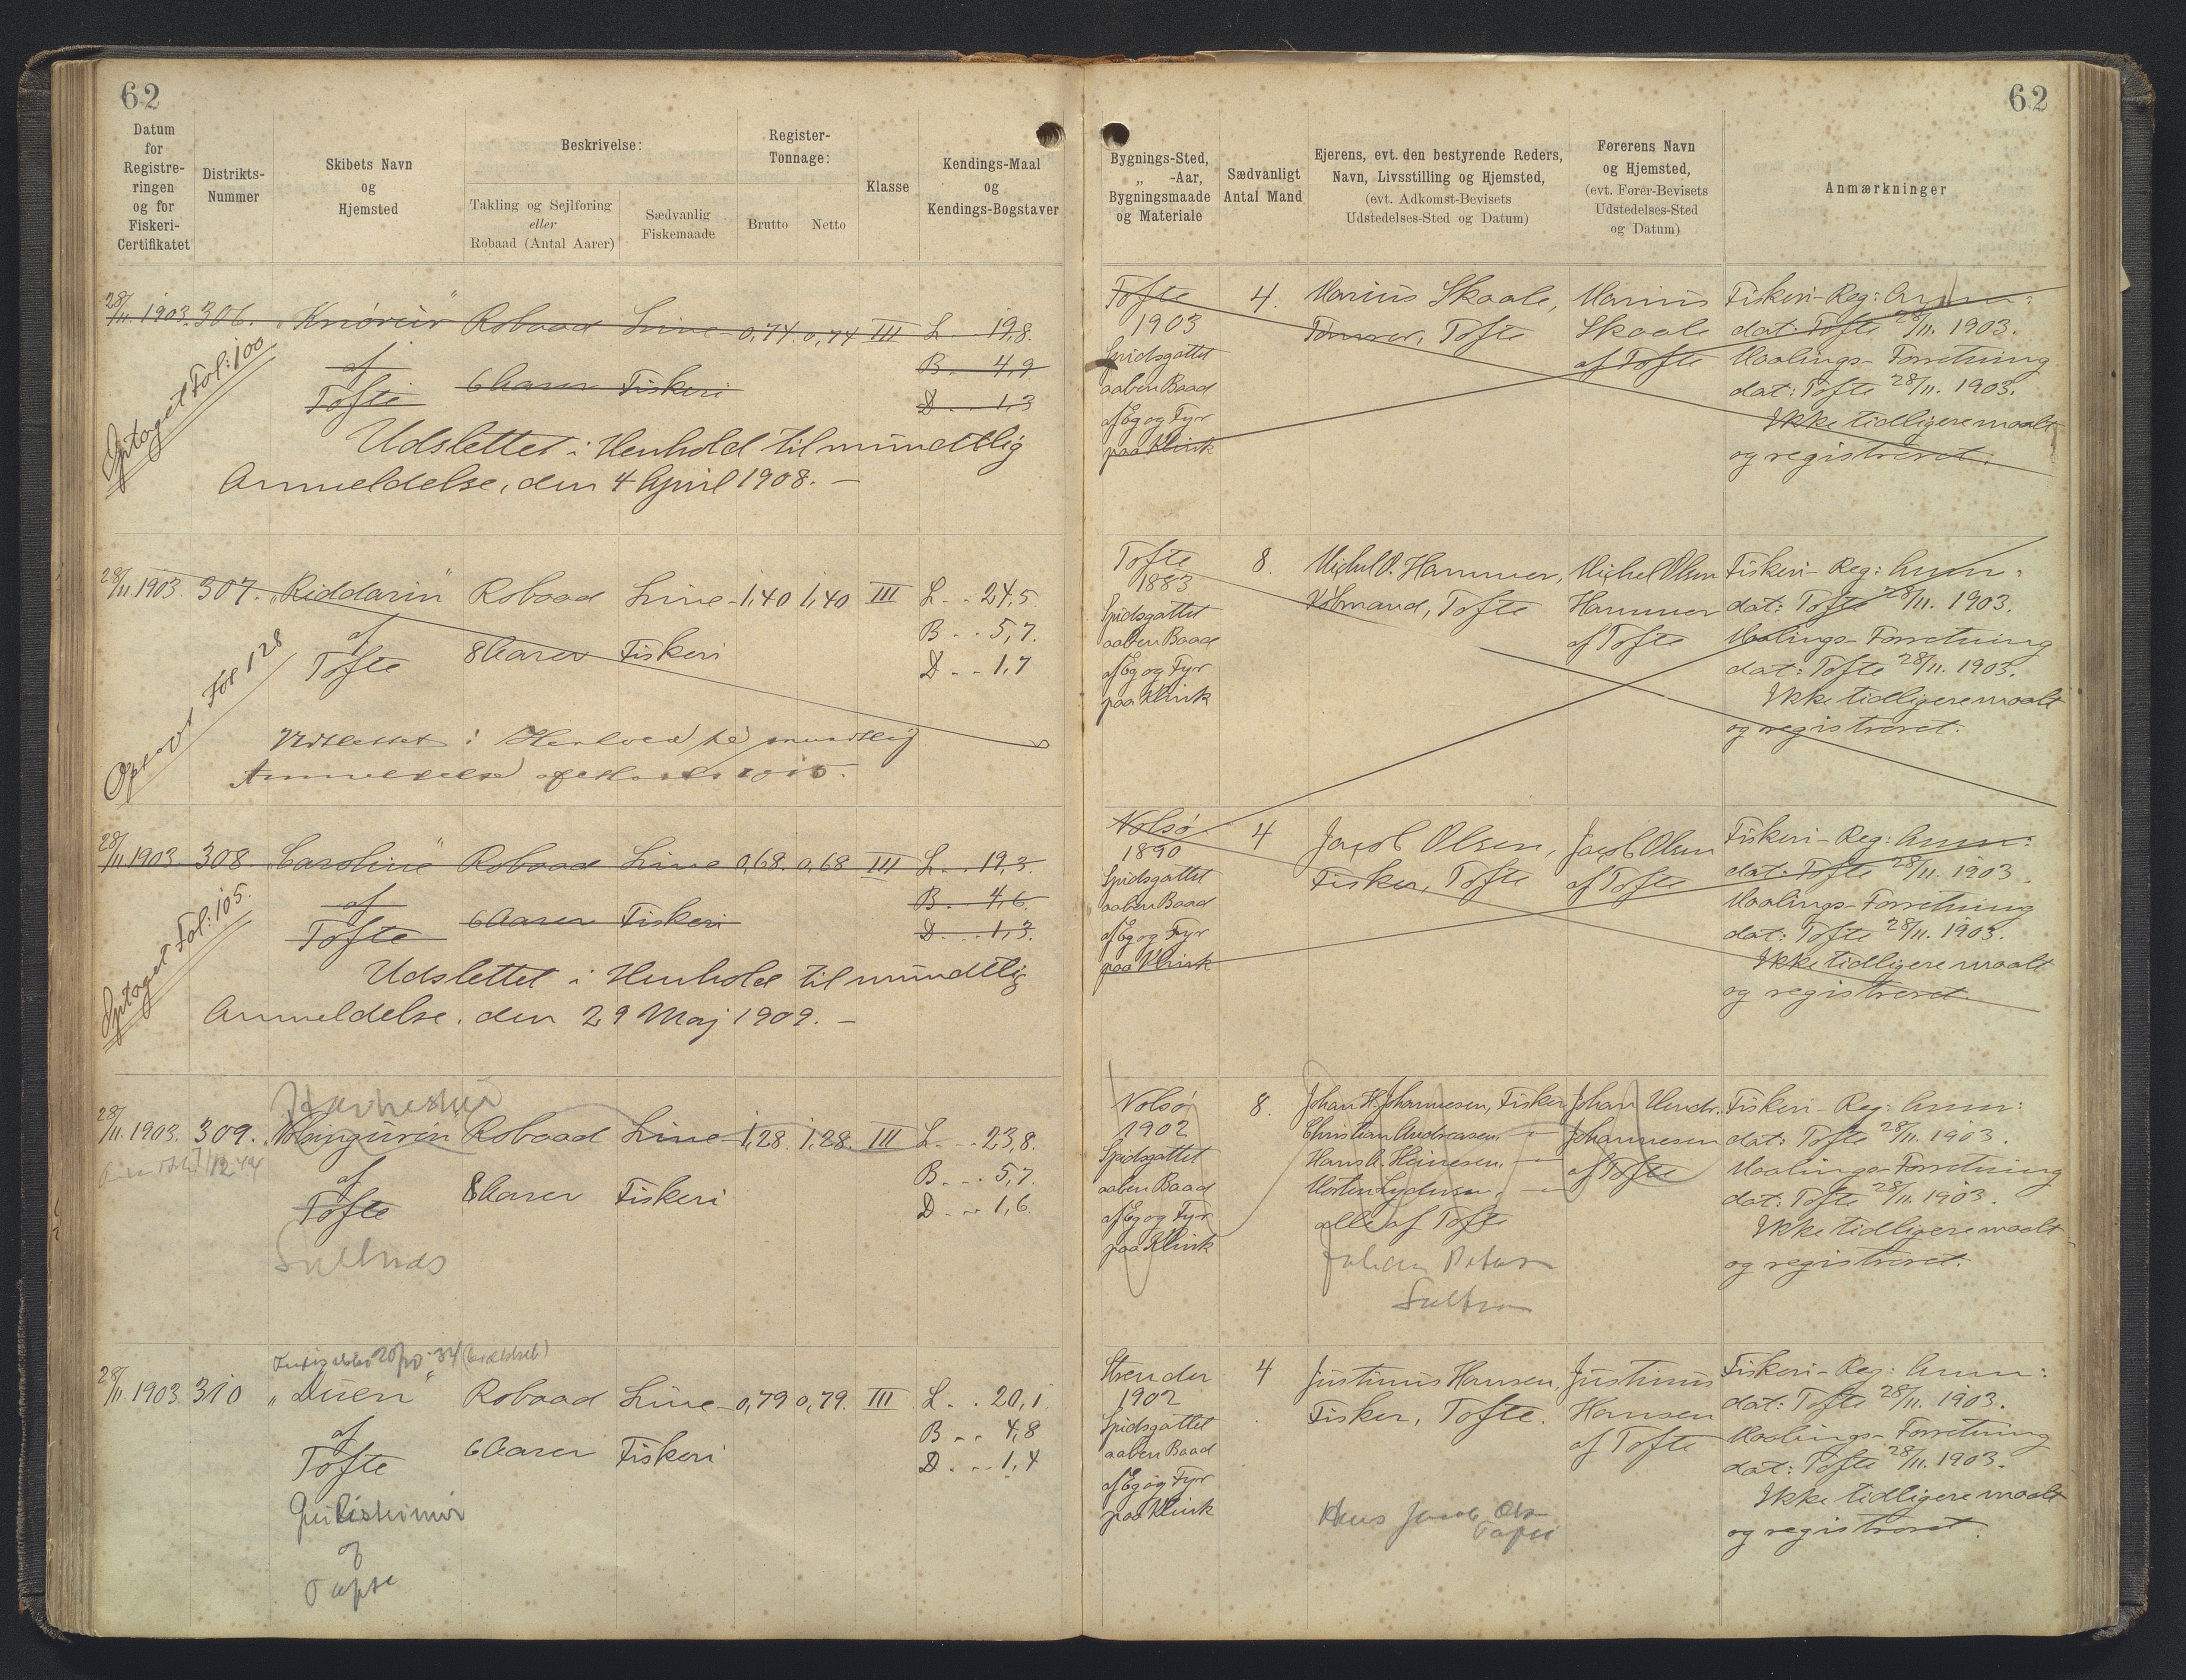 62
Datum
for
Registre-
ringen
og for
Fiskeri-
Certifikatet
Distrikts-
Nummer
Skibets Navn
og
Hjemsted
Beskrivelse:
Takling og Sejlføring
eller
Robaad (Antal Aarer)
Sædvanlig
Fiskemaade
Register-
Tonnage:
Brutto
Netto
Klasse
Kendings-Maal
og
Kendings-Bogstaver
28/11 1903. 306. Robaad Line 0,74. 0,74 III L. 19,8.
af B. 4,9
Tofte 6 Aarer Fiskeri D. . . 1,3
Optaget Fol: 100
Udslettet i Henhold til mundtlig
Anmeldelse, den 4 April 1908. –
28/11 1903. 307. „Riddarin" Robaad Line 1,40 1,40 III L. . . 24,5
af B. . . 5,7.
Tofte 8 Aarer Fiskeri D. . . 1,7
Fol 128
i mundtlig
28/11 1903. 308 „Caroline" Robaad Line 0,68. 0,68 III L. . . 19,3.
af B. . . 4,6.
Tofte 6 Aarer Fiskeri D. . . . 1,3.
Optaget Fol: 105.
Udslettet i Henhold til mundtlig
Anmeldelse. den 29 Maj 1909. –
28/11 1903. 309. Robaad Line 1,28. 1,28. III L. . . 23,8.
af B. . . 5,7.
Tofte 8 Aarer Fiskeri D. . . 1,6
28/11 1903 310 „Duen" Robaad Line 0,79 0,79. III L. . . 20,1.
af B. . . 4,8
Tofte 6 Aarer Fiskeri D. . . 1,4
af
62
Bygnings-Sted,
„ -Aar,
Bygningsmaade
og Materiale
Sædvanligt
Antal Mand
Ejerens, evt. den bestyrende Reders,
Navn, Livsstilling og Hjemsted,
(evt. Adkomst-Bevisets
Udstedelses-Sted og Datum)
Førerens Navn
og Hjemsted,
(evt. Fører-Bevisets
Udstedelses-Sted
og Datum)
Anmærkninger
Tofte 4. Marius Skaale, Marius Fiskeri-Reg: Anm:
1903 Tømrer, Tofte Skaale dat: Tofte 28/11. 1903.
Spidsgattet af Tofte Maalings-Forretning
aaben Baad dat: Tofte 28/11. 1903.
af Eg og Fyr Ikke tidligere maalt
paa Klink og registreret.
Tofte 8. Michel O. Hammer, Michel Olsen Fiskeri-Reg: Anm:
1883 Købmand, Tofte Hammer dat: Tofte 28/11. 1903.
Spidsgattet af Tofte Maalings-Forretning
aaben Baad dat: Tofte 28/11. 1903.
af Eg og Fyr Ikke tidligere maalt
paa Klink og registreret.
Nolsø 4 Jacob Olsen, Jacob Olsen Fiskeri-Reg: Anm:
1890 Fisker, Tofte af Tofte dat: Tofte 28/11. 1903.
Spidsgattet Maalings-Forretning
aaben Baad dat: Tofte 28/11. 1903.
af Eg og Fyr Ikke tidligere maalt
paa Klink og registreret.
Nolsø 8. Johan H. Johannesen, Fisker Johan Hendr. Fiskeri-Reg: Anm:
1902 Christian Andreasen. – " – Johannesen dat: Tofte 28/11. 1903.
Spidsgattet Hans A. Heinesen. – " – af Tofte Maalings-Forretning
aaben Baad Morten Lydersen, – " – dat: Tofte 28/11. 1903.
af Eg og Fyr alle af Tofte Ikke tidligere maalt
paa Klink og registreret.
Johan
Strender 4 Justinus Hansen, Justinus Fiskeri-Reg: Anm:
1902 Fisker, Tofte. Hansen dat: Tofte 28/11. 1903.
Spidsgattet af Tofte Maalings-Forretning
aaben Baad dat: Tofte 28/11. 1903.
af Eg og Fyr Ikke tidligere maalt
paa Klink og registreret.
Hans Jacob